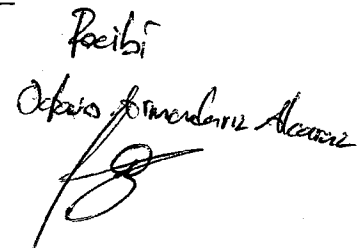 Recibí
Octavio Armendariz Alcaraz